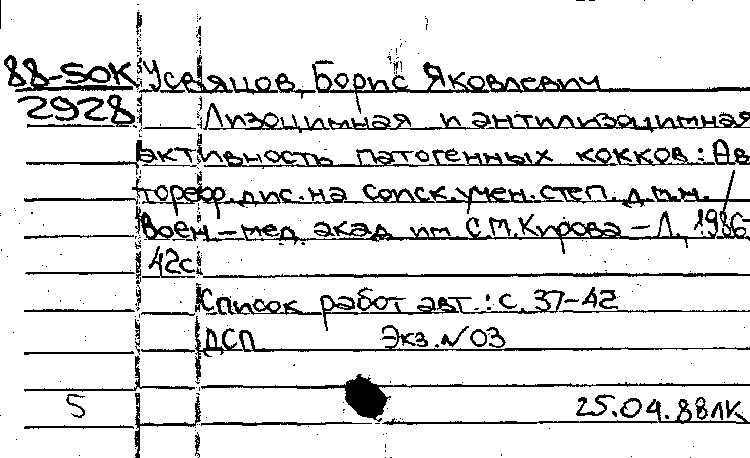 88-50К Усвяцов, Борис Яковлевич
2928 Лизоцимная и антилизоцимная
активность патогенных кокков: Ав
тореф. дис. на соиск. учен. степ. д.м.н. /
Воен.-мед. акад. им С.М. Кирова - Л., 1986
42с
Список работ авт.: с. 37-42
ДСП Экз. N 03
5 25.04.88 ЛК